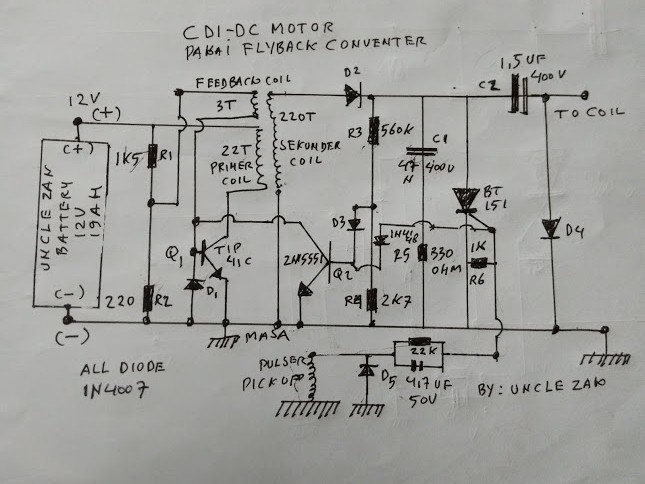 CDI-DC MOTOR
PAKAI FLYBACK CONVENTER
FEEDBACK COIL
3T
220T
22T
PRIMER
COIL
SEKUNDER
COIL
12V
(+)
(+)
UNCLE ZAN
BATTERY
12V
19AH
(-)
(-)
1K5
R1
220
R2
Q1
TIP
41C
D1
MASA
2N5551
Q2
D2
R3
560K
D3
1N4148
R4
2K7
C1
47
N
400V
R5
330
OHM
BT
151
1K
R6
1,5UF
400V
C2
TO COIL
D4
22K
4,7UF
50V
D5
PULSER
PICKUP
ALL DIODE
1N4007
BY: UNCLE ZAN